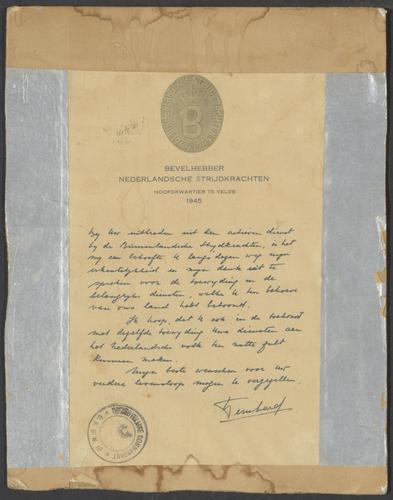 B
BEVELHEBBER
NEDERLANDSCHE STRIJDKRACHTEN
HOOFDKWARTIER TE VELDE
1945
By Uw uittreden uit den actieven dienst
by de Binnenlandsche Strijdkrachten, is het
my een behoefte U langs dezen weg myn
erkentelykheid en myn dank uit te
spreken voor de toewyding en de
belangryke diensten, welke U ten behoeve
van ons land hebt betoond.
Ik hoop, dat U ook in de toekomst
met dezelfde toewyding Uwe diensten aan
het Nederlandsche volk ten nutte zult
kunnen maken.
Myn beste wenschen voor Uw
verdere levensloop mogen U vergezellen.
Bernhard